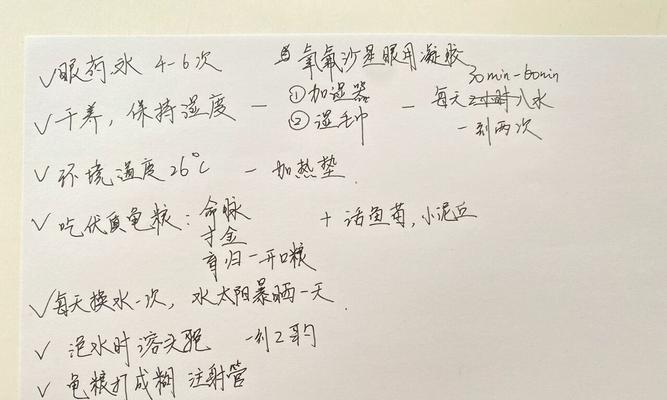 ✓眼药水 4-6次 氧氟沙星眼用凝胶
✓干养，保持湿度 — ①加湿器 ②湿毛巾 — 每天 30min-60min 入水 一到两次
✓环境温度26℃ — 加热垫
✓吃优质龟粮：命脉 + 活鱼苗，小泥丘
寸金
育归一开口粮
✓每天换水一次，水太阳暴晒一天.
✓泡水时溶头孢 一到2勺
✓龟粮打成糊 注射管